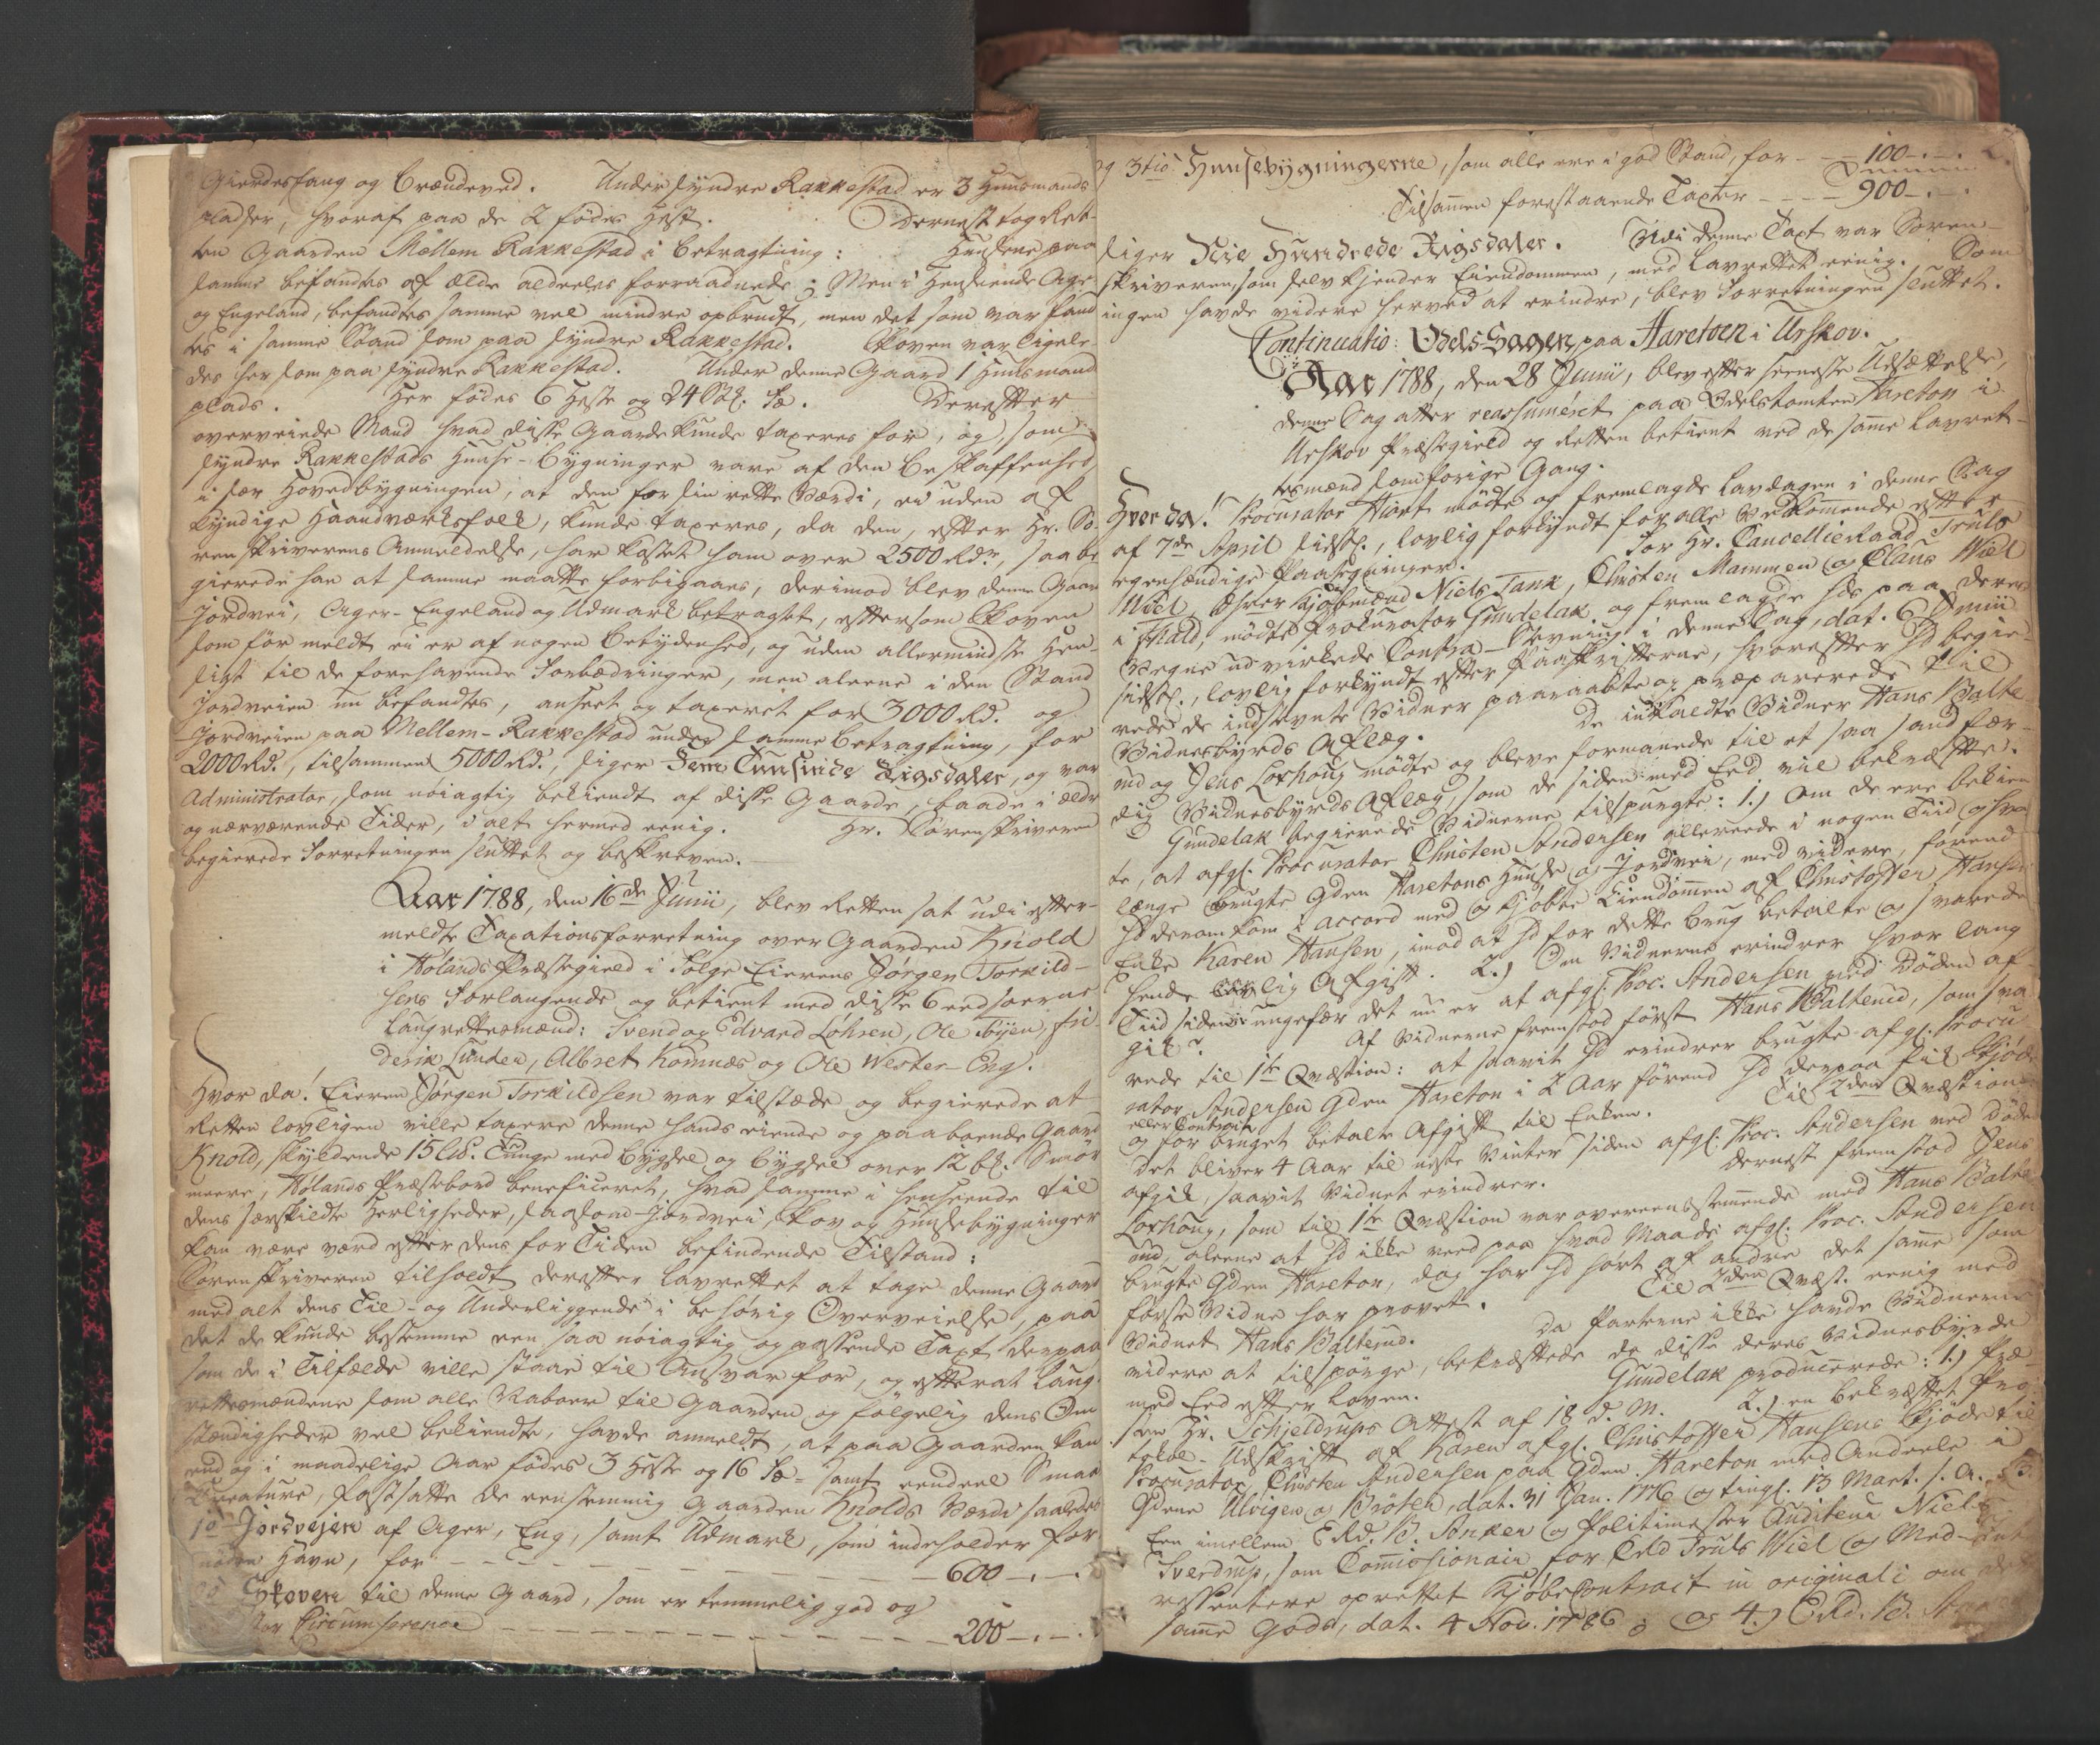 Gierdesfang og Brændeved. Under syndre Rakkestad er 3 Huusmands
pladser, hvoraf paa de 2 födes Hest. Dernest tog Ret-
ten Gaarden Mellem Rakkestad i betragtning: Husene paa
samme befandtes af Ælde aldeeles forraadnede; Men i Henseende Ager
og Engeland, befandtes samme vel mindre opbrudt, men det som var fand
tes i samme Stand som paa syndre Rakkestad. Skoven var ligele-
des her som paa syndre Rakkestad. Under denne Gaard 1 Huusmands
plads. Her födes 6 Heste og 24 Stk. Fæ. Derefter
overveiede Mænd hvad disse Gaarde kunde taxeres for, og, som
syndre Rakkestads Huuse-bygninger vare af den beskaffenhed,
i sær Hovedbygningen, at den for sin rette Værdi, ei uden af
kyndige Haandværksfolk, kunde taxeres, da den, efter Hr. So-
renskriverens Anmeldelse, har kostet ham over 2500 Rdr, saa be
gierede han at samme maatte forbigaaes, derimod blev denne Gaards
Jordvei, Ager- Engeland og Udmark betragtet, eftersom Skoven
som før meldt ei er af nogen betydenhed, og uden allermindste Hen-
sigt til de forehavende Forbedringer, men aleene i den Stand
Jordveien nu befandtes, anseet og taxeret for 3000 Rd. og
Jordveien paa Mellem-Rakkestad under samme betragtning, for
2000 Rd., tilsammen 5000 Rd., siger Fem Tusinde Rigsdaler, og var
Administrator, som nöiagtig bekiendt af disse Gaarde, baade i ældre
og nærværende Tider, i alt hermed eenig. Hr. Sorenskriveren
begierede Forretningen sluttet og beskreven.
Aar 1788, den 16de Junii, blev Retten sat udi efter-
meldte Taxationsforretning over Gaarden Knold
i Hølands Præstegield i Følge Eierens Jørgen Torkild-
sens Forlangende og betient med disse 6 eedsorne
Laugrettesmænd: Svend og Edvard Løhren, Ole Byen, Fri-
derik Lunder, Albret Komnæs og Ole Wester-Eng.
Hvor da! Eieren Jørgen Torkildsen var tilstæde og begierede at
Retten lovligen ville taxere denne hands eiende og paaboende Gaard
Knold, skyldende 15 Lis. Tunge med bygsel og bygsel over 12 bl. Smør
meere, Hølands Præstebord beneficeret, hvad samme i henseende til
dens særskildte Herligheder, saasom Jordvei, Skov og Huusebygninger
kan være værd efter dens for Tiden befindende Tilstand:
Sorenskriveren tilholdt derefter Lavrettet at tage denne Gaard
med alt dens Til- og Underliggende i behörig Overveielse, paa
det de kunde bestemme een saa nöiagtig og passende Taxt derpaa
som de i Tilfælde ville staae til Ansvar for, og efterat Laug-
rettesmændene som alle Naboer til Gaarden og fölgelig dens Om
stændigheder vel bekiendte, havde anmeldt, at paa Gaarden kan
end og i maadelige Aar födes 3 Heste og 16 Fæ- samt eendeel Smaa
Creature, fastsatte de eenstemmig Gaarden Knolds Værdi saaledes
1o Jordvejen af Ager, Eng, samt Udmark, som indeholder for
nöden Havn, for - - - 600 -.-.
Skoven til denne Gaard, som er temmelig god og
Circumference - - - 200 -.-.
og 3tio Huusebygningerne, som alle ere i god Stand, for - - 100 -.-.
Tilsammen forestaaende Taxter - - - 900 -.-.
siger Nie Hundrede Rigsdaler. Udi denne Taxt var Soren-
skriveren, som selv kjender Eiendommen, med Lavrettet eenig. Som
ingen havde videre herved at erindre, blev Forretningen sluttet.
Continuatio: Odels-Sagen paa Haretoen i Urskov.
Aar 1788, den 28 Junii, blev efter seeneste Udsættelse,
denne Sag atter reassumeret paa Odelstomten Hareton i
Urskov Præstegield og Retten betient ved de samme Lavret-
tesmænd som forige Gang.
Hvor da! Procurator Hiort mödte og fremlagde Lavdagen i denne Sag
af 7de April sidstl., lovlig forkyndt for alle Vedkommende efter
egenhændige Paategninger. For Hr. Cancellieraad Truls
Wiel, Øvrer Kjøbmænd Niels Tank, Christen Mammen og Claus Wiel
i Fr.hald, mödte Prokurator Gundelak og fremlagde hds paa deres
Vegne udvirkede Contra-Stevning i denne Sag, dat. 6 Junii
sidstl., lovlig forkyndt efter Paaskrifterne, hvorefter Hd begie-
rede de indstevnte Vidner paaraabte og præparerede til
Vidnesbyrds Aflæg. De indkaldte Vidner Hans Balte
rud og Jens Lorhoug mödte og bleve formanede til et saa sandfær-
dig Vidnesbyrds Aflæg, som de siden med Eed vil bekræfte.
Gundelak begierede Vidnerne tilspurgte: 1.) Om de ere bekien
te, at afgl. Procurator Christen Andersen allereede i nogen Tiid og hvor
længe brugte Gden Haretons Huuse og Jordvei, med videre, forend
Hd derom kom i accord med og kjöbte Eiendommen af Christoffer Hansens
Enke Karen Hansen, imod at Hd for dette brug betalte og svarede
hende aarlig Afgift. 2.) Om Vidnerne erindrer hvor lang
Tiid siden ungefær det nu er at afgl. Proc. Andersen ved Döden af-
gik? Af Vidnerne fremstod först Hans Balterud, som sva
rede til 1te Qvæstion: at saavit Hd erindrer brugte afgl. Procu
rator Andersen Gden Hareton i 2 Aar förend Hd derpaa fik Skjöde
eller Contract
og for bruget betalte Afgift til Enken. Til 2den Qvæstion:
det bliver 4 Aar til neste Vinter siden afgl. Proc. Andersen ved Döden
afgik, saavit Vidnet erindrer. Dernest fremstod Jens
Lorhoug, som til 1te Qvæstion var overeensstemmende med Hans Balte
rud, aleene at Hd ikke veed paa hvad Maade afgl. Proc. Andersen
brugte Gden Hareton, dog har Hd hört af andre det samme som
förste Vidne har provet. Til 2den Qvæst. eenig med
Vidnet Hans Balterud. Da Parterne ikke havde Vidnerne
videre at tilspörge, bekræftede de disse deres Vidnesbyrde
med Eed efter Loven. Gundelak producerede: 1.) Præ-
sten Hr. Schjeldrups Attest af 18 d. M. 2.) en bekræftet Pro-
tokol-Udskrift af Karen afgl. Christoffer Hansens Skjöde til
Procurator Christen Andersen paa Gden Hareton med Andeele i
Gdene Ulvigen og Bröten, dat. 31 Jan. 1776 og tingl. 13 Mart. s. A. 3.)
Een imellem ERd. B. Anker og Politimester Auditeur Niels
Sverdrup, som Commissionair for CRd Truls Wiel og Med-Inte
ressentere oprettet KjöbeContract in originali om
samme Gods, dat. 4 Nov. 1786; og 4.) ERd. B. Anker